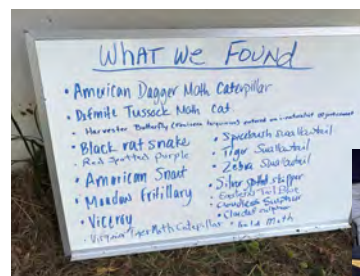 WHAT WE FOUND
• American Dagger Moth Caterpillar
• Definite Tussock Moth cat.
• Harvester Butterfly
• Black rat snake
• Red Spotted Purple
• American Snout
• Meadow Fritillary
• Viceroy
• Virginia Tiger Moth Caterpillar
• Spicebush swallowtail
• Tiger Swallowtail
• Zebra Swallowtail
• Silver spotted skipper
• Eastern Tail Blue
• Cloudless Sulphur
• Clouded sulphur
• Gold Moth